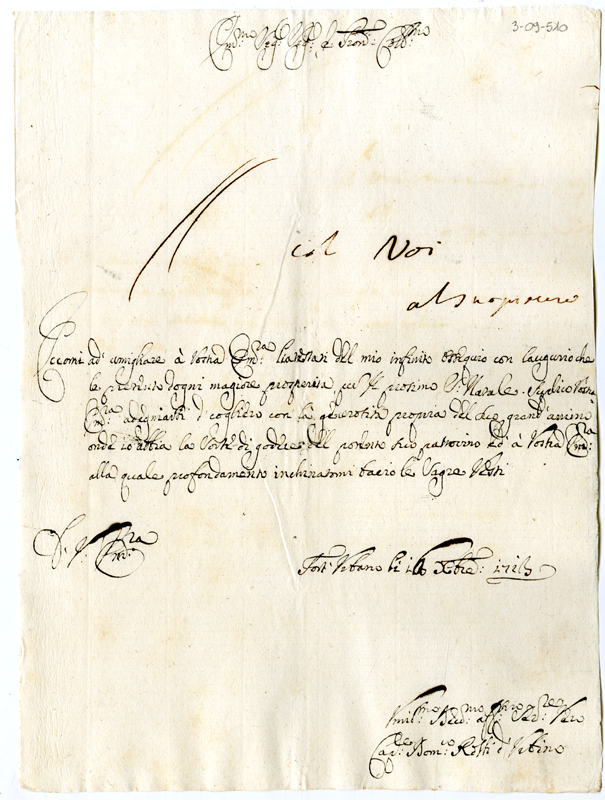 3-09-510
Em.mo Sig.r Sig.r e Pron: Coll.mo
col Noi
Eccomi ad' umigliare à Vostra Em.za li attestati del mio infinito ossequio con l'augurio che
le presento d'ogni magiore prosperità per il prosimo S.to Natale. Suplico Vostra
Em.za à degniarsi d'cogliere con la generosità propria del suo grand'animo
onde io abbia la sorte di godere del potente suo patrocinio ed à Vostra Em.za
alla quale profondamente inchinatomi bacio le Sagre Vesti
D. V. Em.za
Fort' Urbano li 16 Xbre: 1713
Umil.mo Dev.mo Ser.re Vero
Cav.re Dom.co d'Urbino